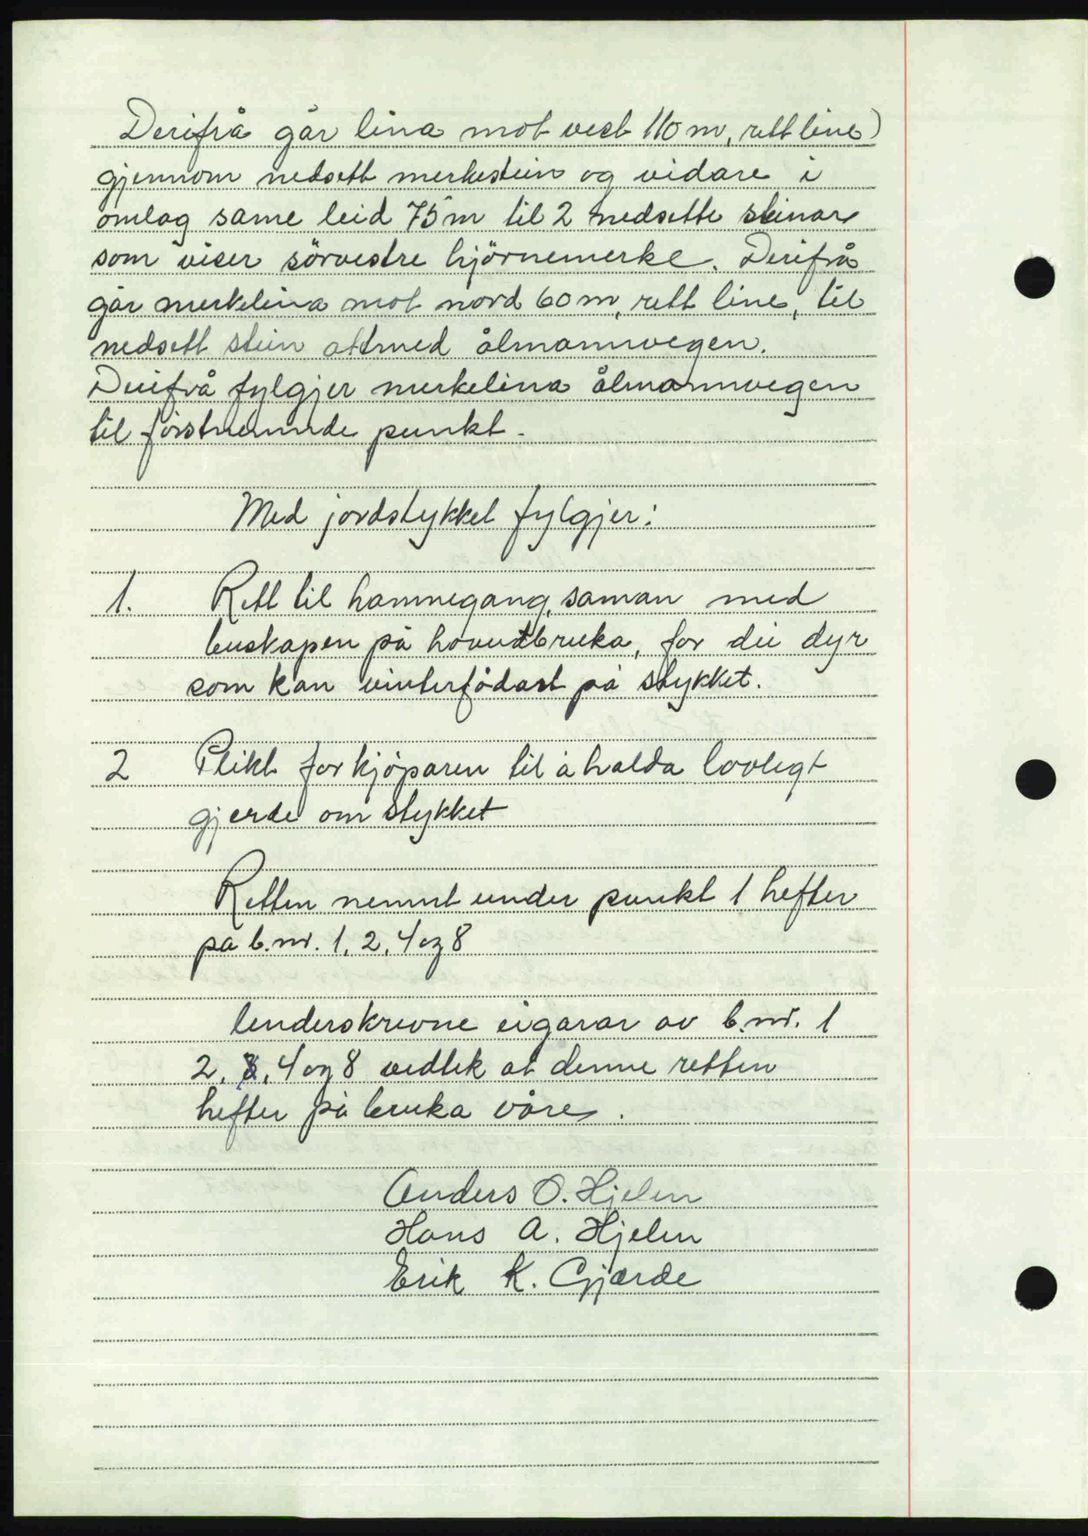 Derifrå går lina mot vest 110 m, rett line)
gjennom nedsett merkestein og vidare i
omlag same leid 75 m til 2 nedsette steinar
som viser sörvestre hjörnemerke. Derifrå
går merkelina mot nord 60 m, rett line, til
nedsett stein attmed ålmannvegen.
Derifrå fylgjer merkelina ålmannvegen
til förstnemnde punkt.
Med jordstykket fylgjer:
1. Rett til hamnegang, saman med
buskapen på hovudbruka, for dei dyr
som kan vinterfödast på stykket.
2 Plikt for kjöparen til å halda lovlegt
gjerde om stykket
Retten nemnt under punkt 1 hefter
på b.nr. 1, 2, 4 og 8
Underskrevne eigarar av b.nr. 1
2, 3, 4 og 8 vedtek at denne retten
hefter på bruka våre.
Anders O. Hjelen
Hans A. Hjelen
Erik K. Gjærde